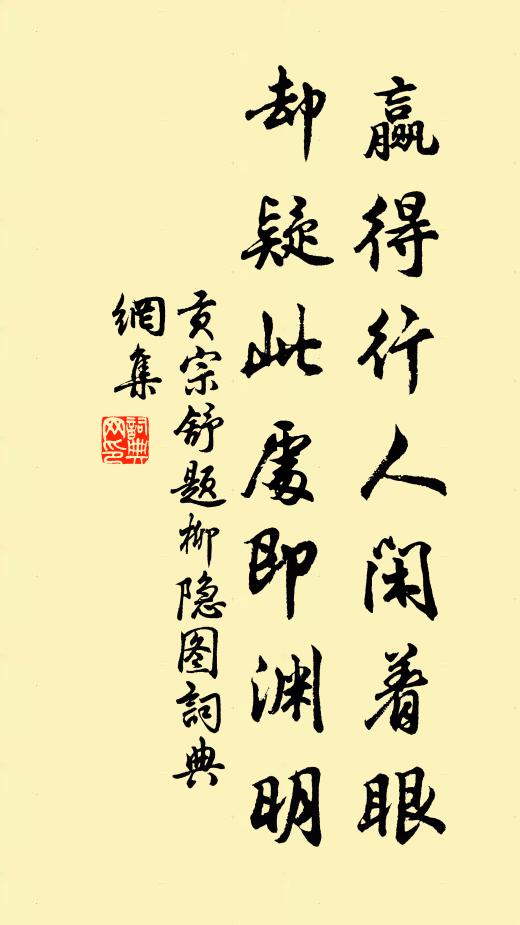 赢得行人闲着眼
却疑此處即渊明
贡宗舒题柳隐图詞典
網集
詞典
网印